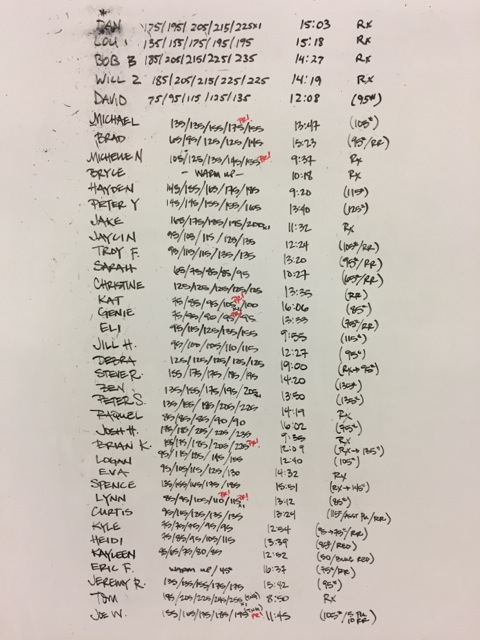 DAN 175/195/205/215/225x1 15:03 Rx
LOU 135/155/175/195/195 15:18 Rx
BOB B 185/205/215/225/235 14:27 Rx
WILL Z 185/205/215/225/225 14:19 Rx
DAVID 75/95/115/125/135 12:08 (95#)
MICHAEL 135/135/155/175/155 PR! 13:47 (105#)
BRAD 65/95/125/125/145 15:23 (95#/RR)
MICHELE N 105/125/135/145/155 PR! 9:37 Rx
BRYCE - WARM UP - 10:18 Rx
HAYDEN 145/155/165/175/185 9:20 (115#)
PETER Y 145/145/155/155/165 13:40 (125#)
JAKE 165/175/185/195/200x1 11:32 Rx
JAYLIN 95/105/115/125/135 12:24 (105#/RR)
TROY F. 95/115/115/135/135 13:20 (95#/RR)
SARAH 65/75/85/85/95 10:27 (65#/RR)
CHRISTINE 125/125/125/125/125 13:35 (RR)
KAT 75/85/95/105/100 PR! 16:06 (85#)
GENIE 75/85/90/95/95 PR! 13:33 (75#/RR)
ELI 95/115/125/135/155 9:55 (115#)
JILL H. 95/105/105/110/115 12:27 (95#)
DEBRA 125/125/125/125/125 19:00 (Rx→95#)
STEVE R. 155/175/175/185/195 14:20 (135#)
BEN 135/155/175/195/205 13:50 (135#)
PETER S. 135/185/205/225 14:19 Rx
RAQUEL 85/85/85/90/90 16:02 (95#)
JOSH H. 185/205/225/235 9:35 Rx
BRIAN K. 155/175/185/205/225 PR! 12:09 (Rx→135#)
LOGAN 95/115/105/145/155 12:40 (105#)
EVA 95/105/115/125/130 14:32 Rx
SPENCE 135/155/165/175/185 15:51 (Rx→145#)
LYNN 85/95/105/110/115 PR! PR! x1 13:12 (85#)
CURTIS 95/115/125/135/135 13:24
KYLE 75/75/95/95/95 12:54 (95→75#/RR)
HEIDI 75/85/95/105/115 13:39 (85#/RED)
KAYLEEN 55/65/75/80/85 12:52 (50/BLUE RED)
ERIC F. WARM UP/45# 16:37 (75#/RR)
JEREMY R. 135/155/155/175/175 15:42 (95#)
TOM 195/205/225/245/255 8:50 Rx
JOE W. 155/165/175/185/195 PR! 11:45